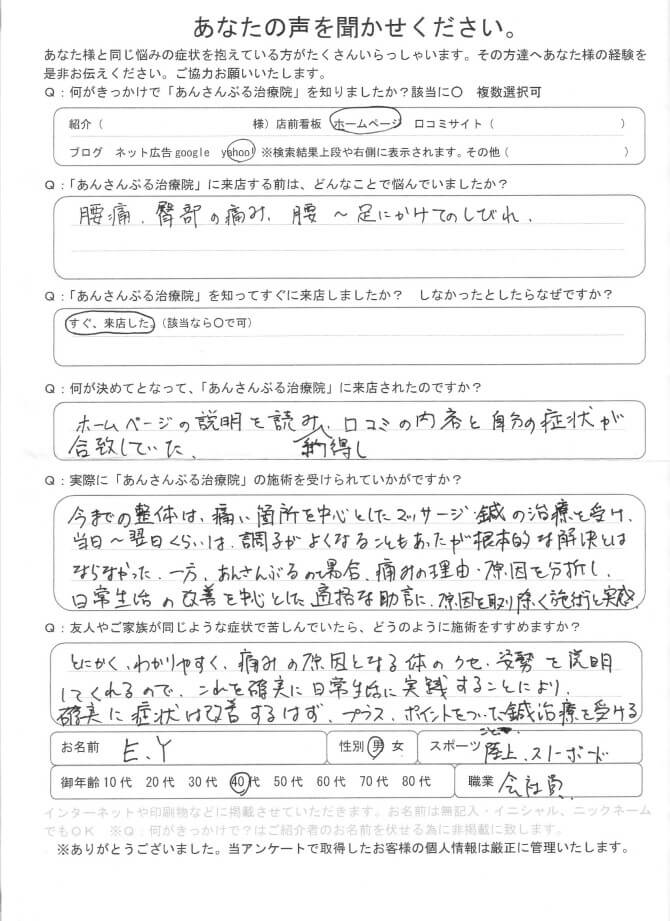 あなたの声を聞かせください。
あなた様と同じ悩みの症状を抱えている方がたくさんいらっしゃいます。その方達へあなた様の経験を
是非お伝えください。ご協力お願いいたします。
Q：何がきっかけで「あんさんぶる治療院」を知りましたか？該当に〇　複数選択可
紹介（　　　　　　　　　　　　様）店前看板　ホームページ　口コミサイト（　　　　　　　　　　）
ブログ　ネット広告google　yahoo!　※検索結果上段や右側に表示されます。その他（　　　　　　　　　）
Q：「あんさんぶる治療院」に来店する前は、どんなことで悩んでいましたか？
腰痛、臀部の痛み、腰～足にかけてのしびれ、
Q：「あんさんぶる治療院」を知ってすぐに来店しましたか？　しなかったとしたらなぜですか？
すぐ、来店した。（該当なら〇で可）
Q：何が決めてとなって、「あんさんぶる治療院」に来店されたのですか？
ホームページの説明を読み、口コミの内容と自分の症状が
合致していた、　納得し
Q：実際に「あんさんぶる治療院」の施術を受けられていかがですか？
今までの整体は、痛い箇所を中心としたマッサージ 鍼の治療を受け、
当日～翌日くらいは、調子がよくなることもあったが根本的な解決とは
ならなかった、一方、あんさんぶるの場合、痛みの理由・原因を分析し、
日常生活の改善を中心とした適格な助言に、原因を取り除く施術と実感
Q：友人やご家族が同じような症状で苦しんでいたら、どうのように施術をすすめますか？
とにかく、わかりやすく、痛みの原因となる体のクセ、姿勢を説明
してくれるので、これを確実に日常生活に実践することにより、
確実に症状は改善するはず、プラス、ポイントをついた鍼治療を受ける
こと
お名前　E、Y　性別　男　女　スポーツ　陸上、スノーボード
御年齢 10代　20代　30代　40代　50代　60代　70代　80代　職業　会社員
インターネットや印刷物などに掲載させていただきます。お名前は無記入・イニシャル、ニックネーム
でもOK　※Q：何がきっかけで？はご紹介者のお名前を伏せる為に非掲載に致します。
※ありがとうございました。当アンケートで取得したお客様の個人情報は厳正に管理いたします。